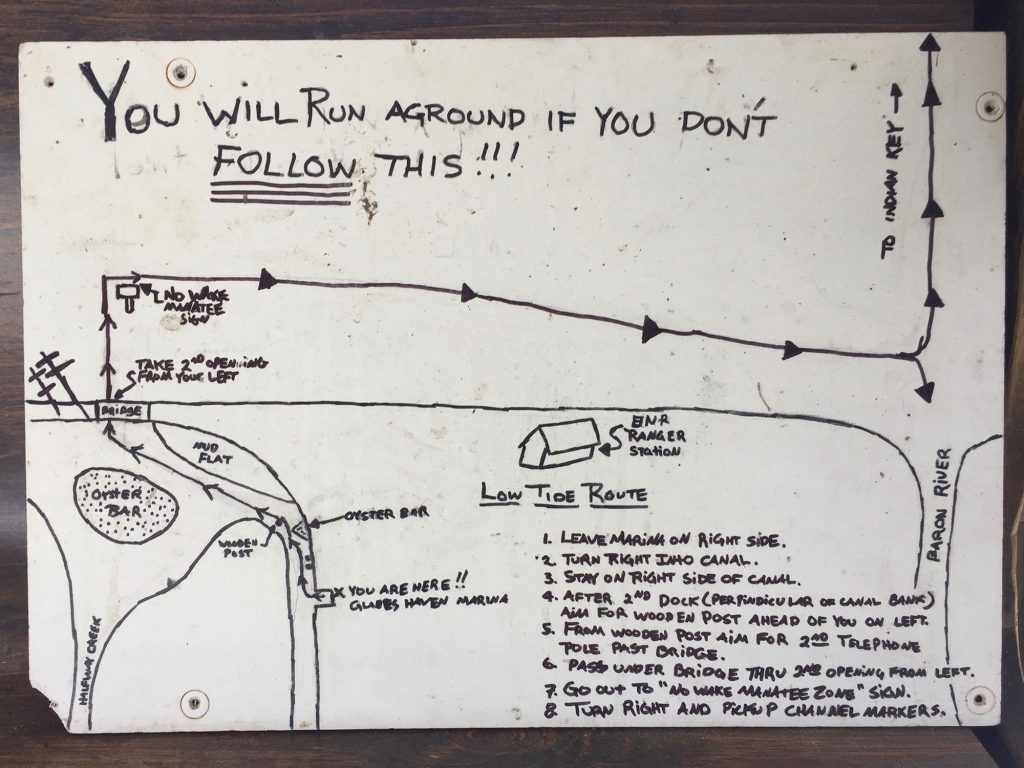 YOU WILL RUN AGROUND IF YOU DON'T
FOLLOW THIS!!!
TO INDIAN KEY →
NO WAKE
MANATEE
SIGN
TAKE 2ND OPENING
FROM YOUR LEFT
BRIDGE
MUD
FLAT
OYSTER
BAR
OYSTER BAR
WOODEN
POST
X YOU ARE HERE!!
GLADES HAVEN MARINA
HALFWAY CREEK
RANGER
STATION
BARON RIVER
LOW TIDE ROUTE
1. LEAVE MARINA ON RIGHT SIDE.
2. TURN RIGHT INTO CANAL.
3. STAY ON RIGHT SIDE OF CANAL.
4. AFTER 2ND DOCK (PERPINDICULAR OF CANAL BANK)
AIM FOR WOODEN POST AHEAD OF YOU ON LEFT.
5. FROM WOODEN POST AIM FOR 2ND TELEPHONE
POLE PAST BRIDGE.
6. PASS UNDER BRIDGE THRU 2ND OPENING FROM LEFT.
7. GO OUT TO "NO WAKE MANATEE ZONE" SIGN.
8. TURN RIGHT AND PICKUP CHANNEL MARKERS.